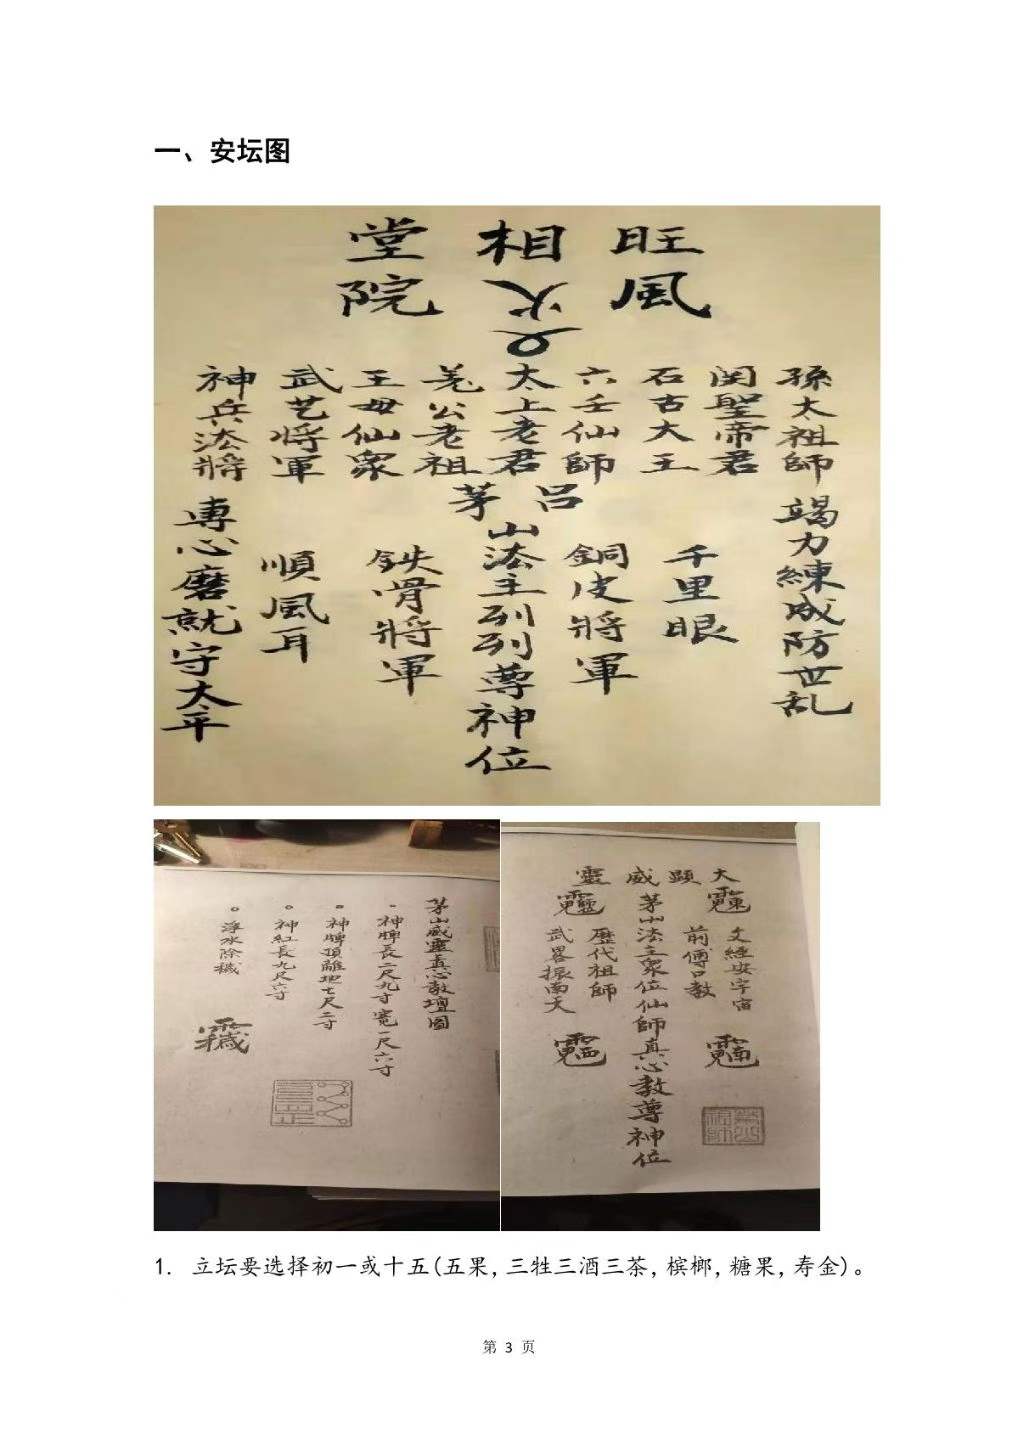 一、安坛图
旺相堂
風火院
孫太祖師
関聖帝君
石古大王
六壬仙師
太上老君
羗公老祖
王母仙眾
武艺将軍
神兵法將
竭力練成防世乱
千里眼
銅皮將軍
吕茅
山法主列列尊神位
鉄骨將軍
順風耳
專心磨就守太平
茅山威靈真心教壇圖
神牌長二尺九寸寬一尺六寸
神牌頂離地七尺二寸
神紅長九尺六寸
淨水除穢
大顕威靈
文經安宇宙
前傳口教
茅山法主眾位仙師真心教尊神位
歷代祖師
武畧振南天
1. 立坛要选择初一或十五(五果,三牲三酒三茶,槟榔,糖果,寿金)。
第 3 页